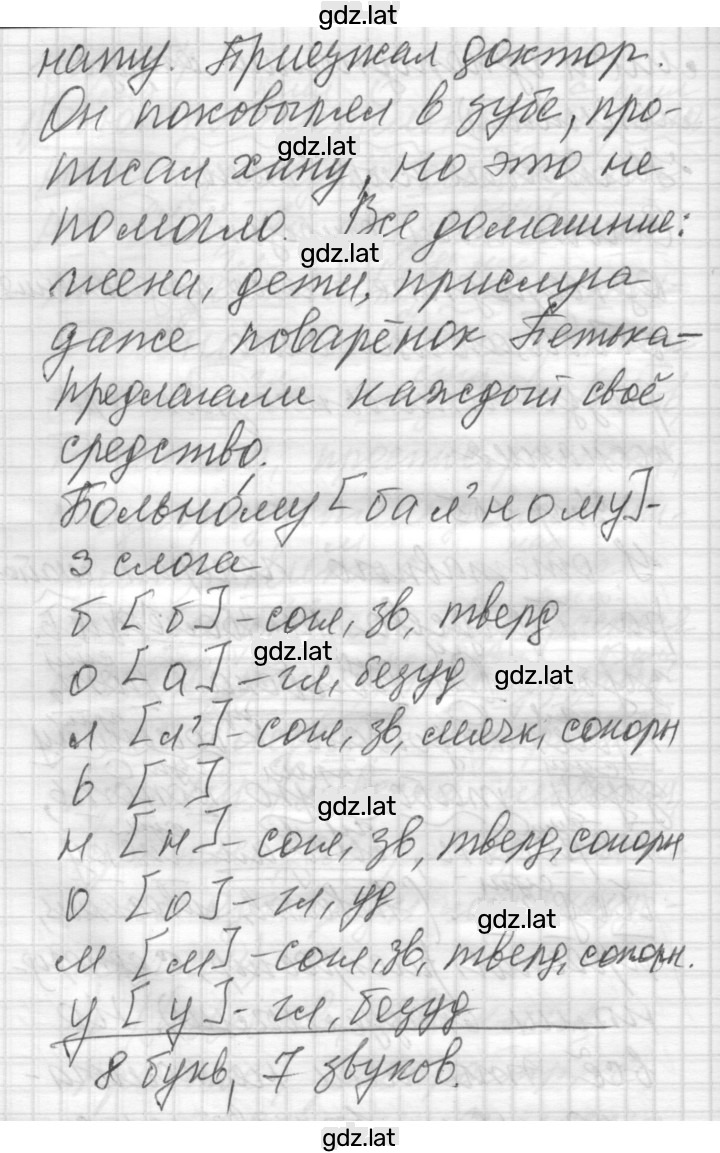 gdz.lat
нату. Приезжал доктор.
Он поковырял в зубе, про-
gdz.lat
писал хину, но это не
помогло. Все домашние:
gdz.lat
жена, дети, прислуга
даже поварёнок Петька-
предлагали каждый своё
средство.
Больно́му [бал'ному]-
3 слога
б [б] - согл, зв, тверд
gdz.lat
о [а] - гл, безуд
gdz.lat
л [л'] - согл, зв, мягк, сонорн
ь [ ]
gdz.lat
н [н] - согл, зв, тверд, сонорн
о [о] - гл, уд
gdz.lat
м [м] - согл, зв, тверд, сонорн.
у [у] - гл, безуд
8 букв, 7 звуков.
gdz.lat